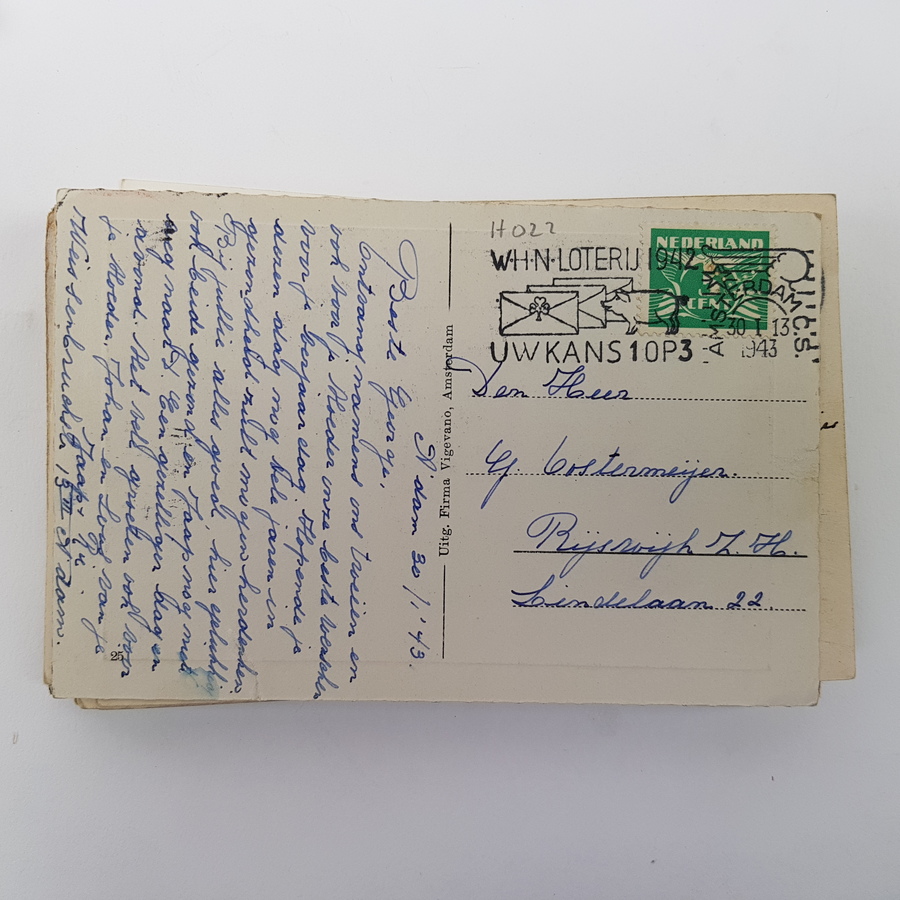 H022
W·H·N·LOTERIJ 1942
UW KANS 1 OP 3
NEDERLAND
AMSTERDAM
30 I 13
1943
Den Heer
G. Oostermeijer.
Rijswijk Z. H.
Lindelaan 22.
Uitg. Firma Vigevano, Amsterdam
A'dam 30/1 '43.
Beste George,
Ontvang namens ons tweeën en
ook voor je Moeder onze beste wenschen
voor je verjaardag. Hopende je
dezen dag nog vele jaren in
gezondheid zult mogen herdenken.
Bij jullie alles goed? hier gelukkig
ook beide gezond en Jaap nog niet
weg naar D. Een gezellige dag en
avond. Met veel groeten ook voor
je Moeder, Johan en Loui van je
Jaap +
Weissenbruchstr 15 III A'dam.
25